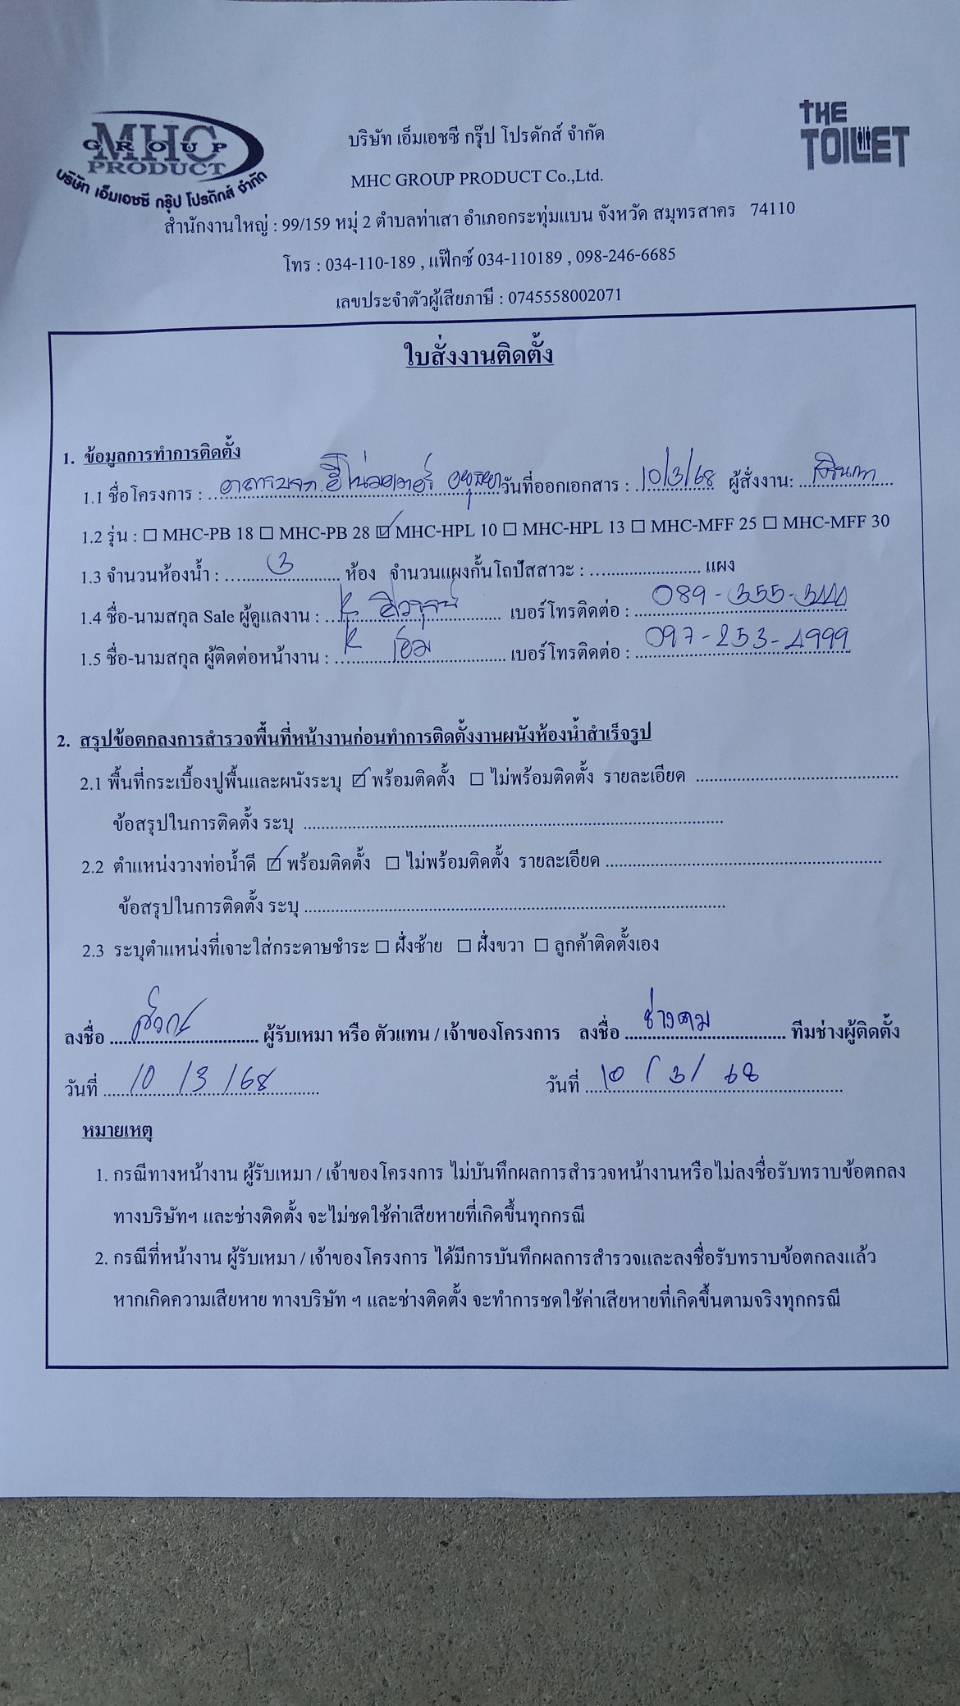 MHC
GROUP
PRODUCT
บริษัท เอ็มเอชซี กรุ๊ป โปรดักส์ จำกัด
THE
TOILET
บริษัท เอ็มเอชซี กรุ๊ป โปรดักส์ จำกัด
MHC GROUP PRODUCT Co.,Ltd.
สำนักงานใหญ่ : 99/159 หมู่ 2 ตำบลท่าเสา อำเภอกระทุ่มแบน จังหวัด สมุทรสาคร 74110
โทร : 034-110-189 , แฟ๊กซ์ 034-110189 , 098-246-6685
เลขประจำตัวผู้เสียภาษี : 0745558002071
ใบสั่งงานติดตั้ง
1. ข้อมูลการทำการติดตั้ง
1.1 ชื่อโครงการ : วันที่ออกเอกสาร : 10/3/68 ผู้สั่งงาน:
1.2 รุ่น : ☐ MHC-PB 18 ☐ MHC-PB 28 ☑ MHC-HPL 10 ☐ MHC-HPL 13 ☐ MHC-MFF 25 ☐ MHC-MFF 30
1.3 จำนวนห้องน้ำ : 3 ห้อง จำนวนแผงกั้นโถปัสสาวะ : ........ แผง
1.4 ชื่อ-นามสกุล Sale ผู้ดูแลงาน : K เบอร์โทรติดต่อ : 089-355-
1.5 ชื่อ-นามสกุล ผู้ติดต่อหน้างาน : K เบอร์โทรติดต่อ : 097-253-4999
2. สรุปข้อตกลงการสำรวจพื้นที่หน้างานก่อนทำการติดตั้งงานผนังห้องน้ำสำเร็จรูป
2.1 พื้นที่กระเบื้องปูพื้นและผนังระบุ ☑ พร้อมติดตั้ง ☐ ไม่พร้อมติดตั้ง รายละเอียด ........
ข้อสรุปในการติดตั้ง ระบุ ........
2.2 ตำแหน่งวางท่อน้ำดี ☑ พร้อมติดตั้ง ☐ ไม่พร้อมติดตั้ง รายละเอียด ........
ข้อสรุปในการติดตั้ง ระบุ ........
2.3 ระบุตำแหน่งที่เจาะใส่กระดาษชำระ ☐ ฝั่งซ้าย ☐ ฝั่งขวา ☐ ลูกค้าติดตั้งเอง
ลงชื่อ ผู้รับเหมา หรือ ตัวแทน / เจ้าของโครงการ ลงชื่อ ช่างคม ทีมช่างผู้ติดตั้ง
วันที่ 10 / 3 / 68 วันที่ 10 / 3 / 68
หมายเหตุ
1. กรณีทางหน้างาน ผู้รับเหมา / เจ้าของโครงการ ไม่บันทึกผลการสำรวจหน้างานหรือไม่ลงชื่อรับทราบข้อตกลง
ทางบริษัทฯ และช่างติดตั้ง จะไม่ชดใช้ค่าเสียหายที่เกิดขึ้นทุกกรณี
2. กรณีที่หน้างาน ผู้รับเหมา / เจ้าของโครงการ ได้มีการบันทึกผลการสำรวจและลงชื่อรับทราบข้อตกลงแล้ว
หากเกิดความเสียหาย ทางบริษัท ฯ และช่างติดตั้ง จะทำการชดใช้ค่าเสียหายที่เกิดขึ้นตามจริงทุกกรณี